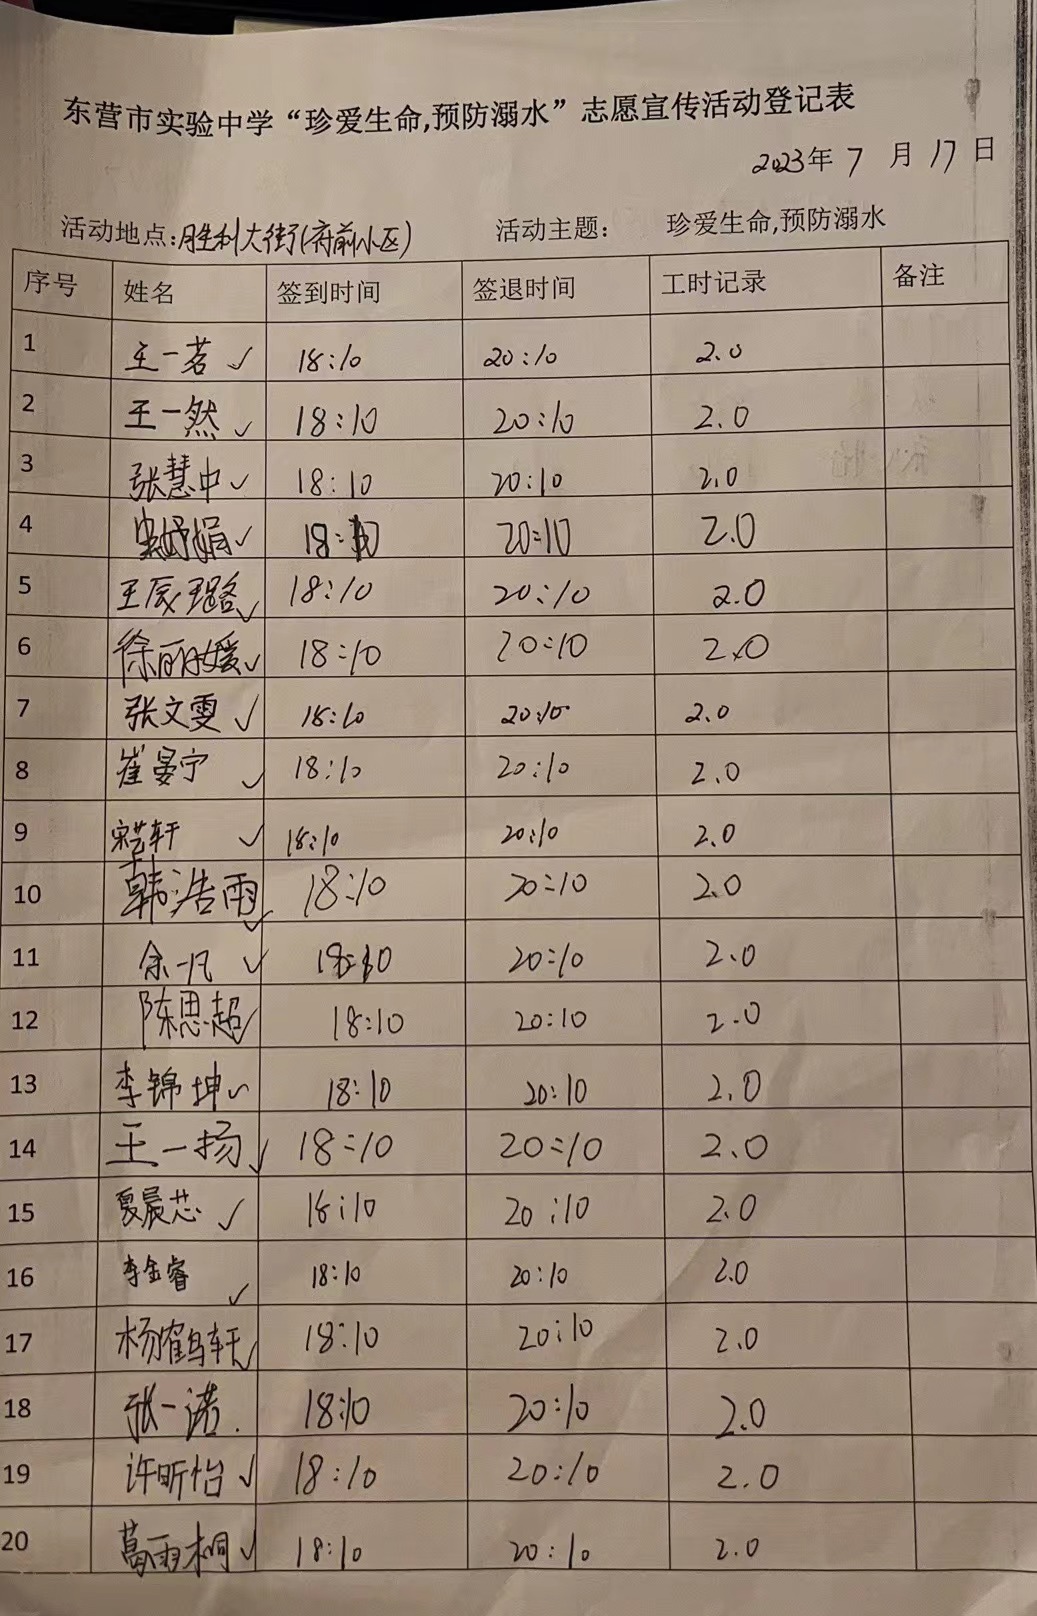 东营市实验中学“珍爱生命,预防溺水”志愿宣传活动登记表
2023年 7 月 17 日
活动地点:胜利大街(府前小区) 活动主题: 珍爱生命,预防溺水
序号 姓名 签到时间 签退时间 工时记录 备注
1 王一茗 ✓ 18:10 20:10 2.0
2 王一然 ✓ 18:10 20:10 2.0
3 张慧中 ✓ 18:10 20:10 2.0
4 ✓ 18:10 20:10 2.0
5 王辰璐 ✓ 18:10 20:10 2.0
6 徐丽媛 ✓ 18:10 20:10 2.0
7 张文雯 ✓ 18:10 20:10 2.0
8 崔晏宁 ✓ 18:10 20:10 2.0
9 宋艺轩 ✓ 18:10 20:10 2.0
10 韩浩雨 ✓ 18:10 20:10 2.0
11 余一凡 ✓ 18:10 20:10 2.0
12 陈思超 ✓ 18:10 20:10 2.0
13 李锦坤 ✓ 18:10 20:10 2.0
14 王一扬 ✓ 18:10 20:10 2.0
15 夏晨芯 ✓ 18:10 20:10 2.0
16 李金睿 ✓ 18:10 20:10 2.0
17 杨鹤轩 ✓ 18:10 20:10 2.0
18 张一诺. 18:10 20:10 2.0
19 许昕怡 ✓ 18:10 20:10 2.0
20 葛雨桐 ✓ 18:10 20:10 2.0